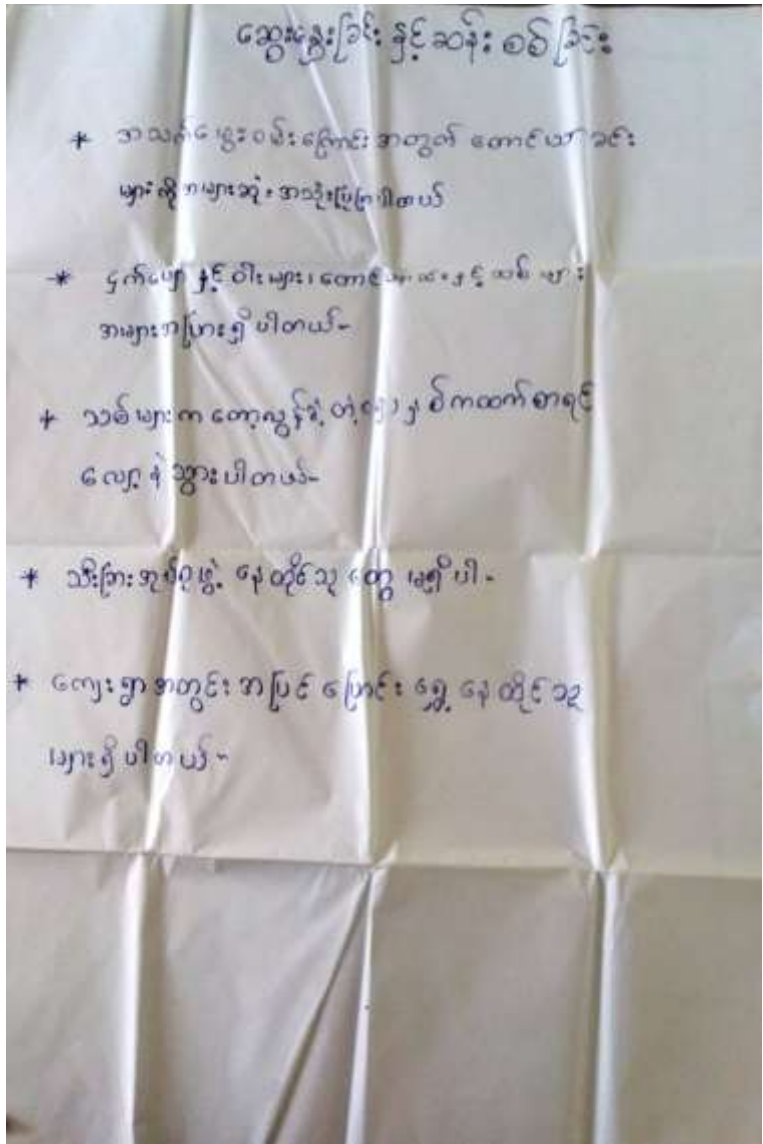 ဆွေးနွေးခြင်း နှင့် ဆန်း စစ် ခြင်း
* အသက်မွေးဝမ်းကြောင်းအတွက် တောင်ယာ ခင်း
များကိုအများဆုံး အသုံးပြုကြပါတယ်
* ငှက်ပျော နှင့် ဝါးများ၊ တောင် နှင့် သစ် များ
အများအပြားရှိပါတယ်-
* သစ်များက တော့လွန်ခဲ့တဲ့ (၅) နှစ်ကထက်စာရင်
လျော့နဲသွားပါတယ်-
* သီးခြားအုပ်စုဖွဲ့ နေထိုင်သူ တွေ မရှိပါ -
* ကျေးရွာအတွင်း အပြင် ပြောင်းရွှေ့ နေထိုင်သူ
များရှိပါတယ် -